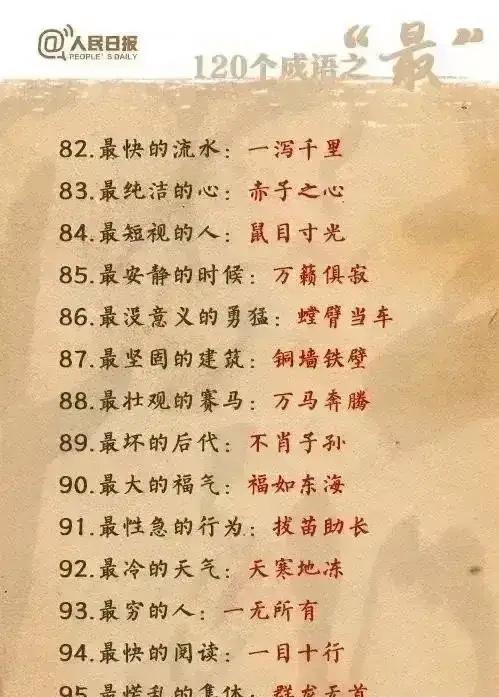 @人民日报
PEOPLE'S DAILY
120个成语之“最”
82.最快的流水：一泻千里
83.最纯洁的心：赤子之心
84.最短视的人：鼠目寸光
85.最安静的时候：万籁俱寂
86.最没意义的勇猛：螳臂当车
87.最坚固的建筑：铜墙铁壁
88.最壮观的赛马：万马奔腾
89.最坏的后代：不肖子孙
90.最大的福气：福如东海
91.最性急的行为：拔苗助长
92.最冷的天气：天寒地冻
93.最穷的人：一无所有
94.最快的阅读：一目十行
95.最慌乱的集体：群龙无首